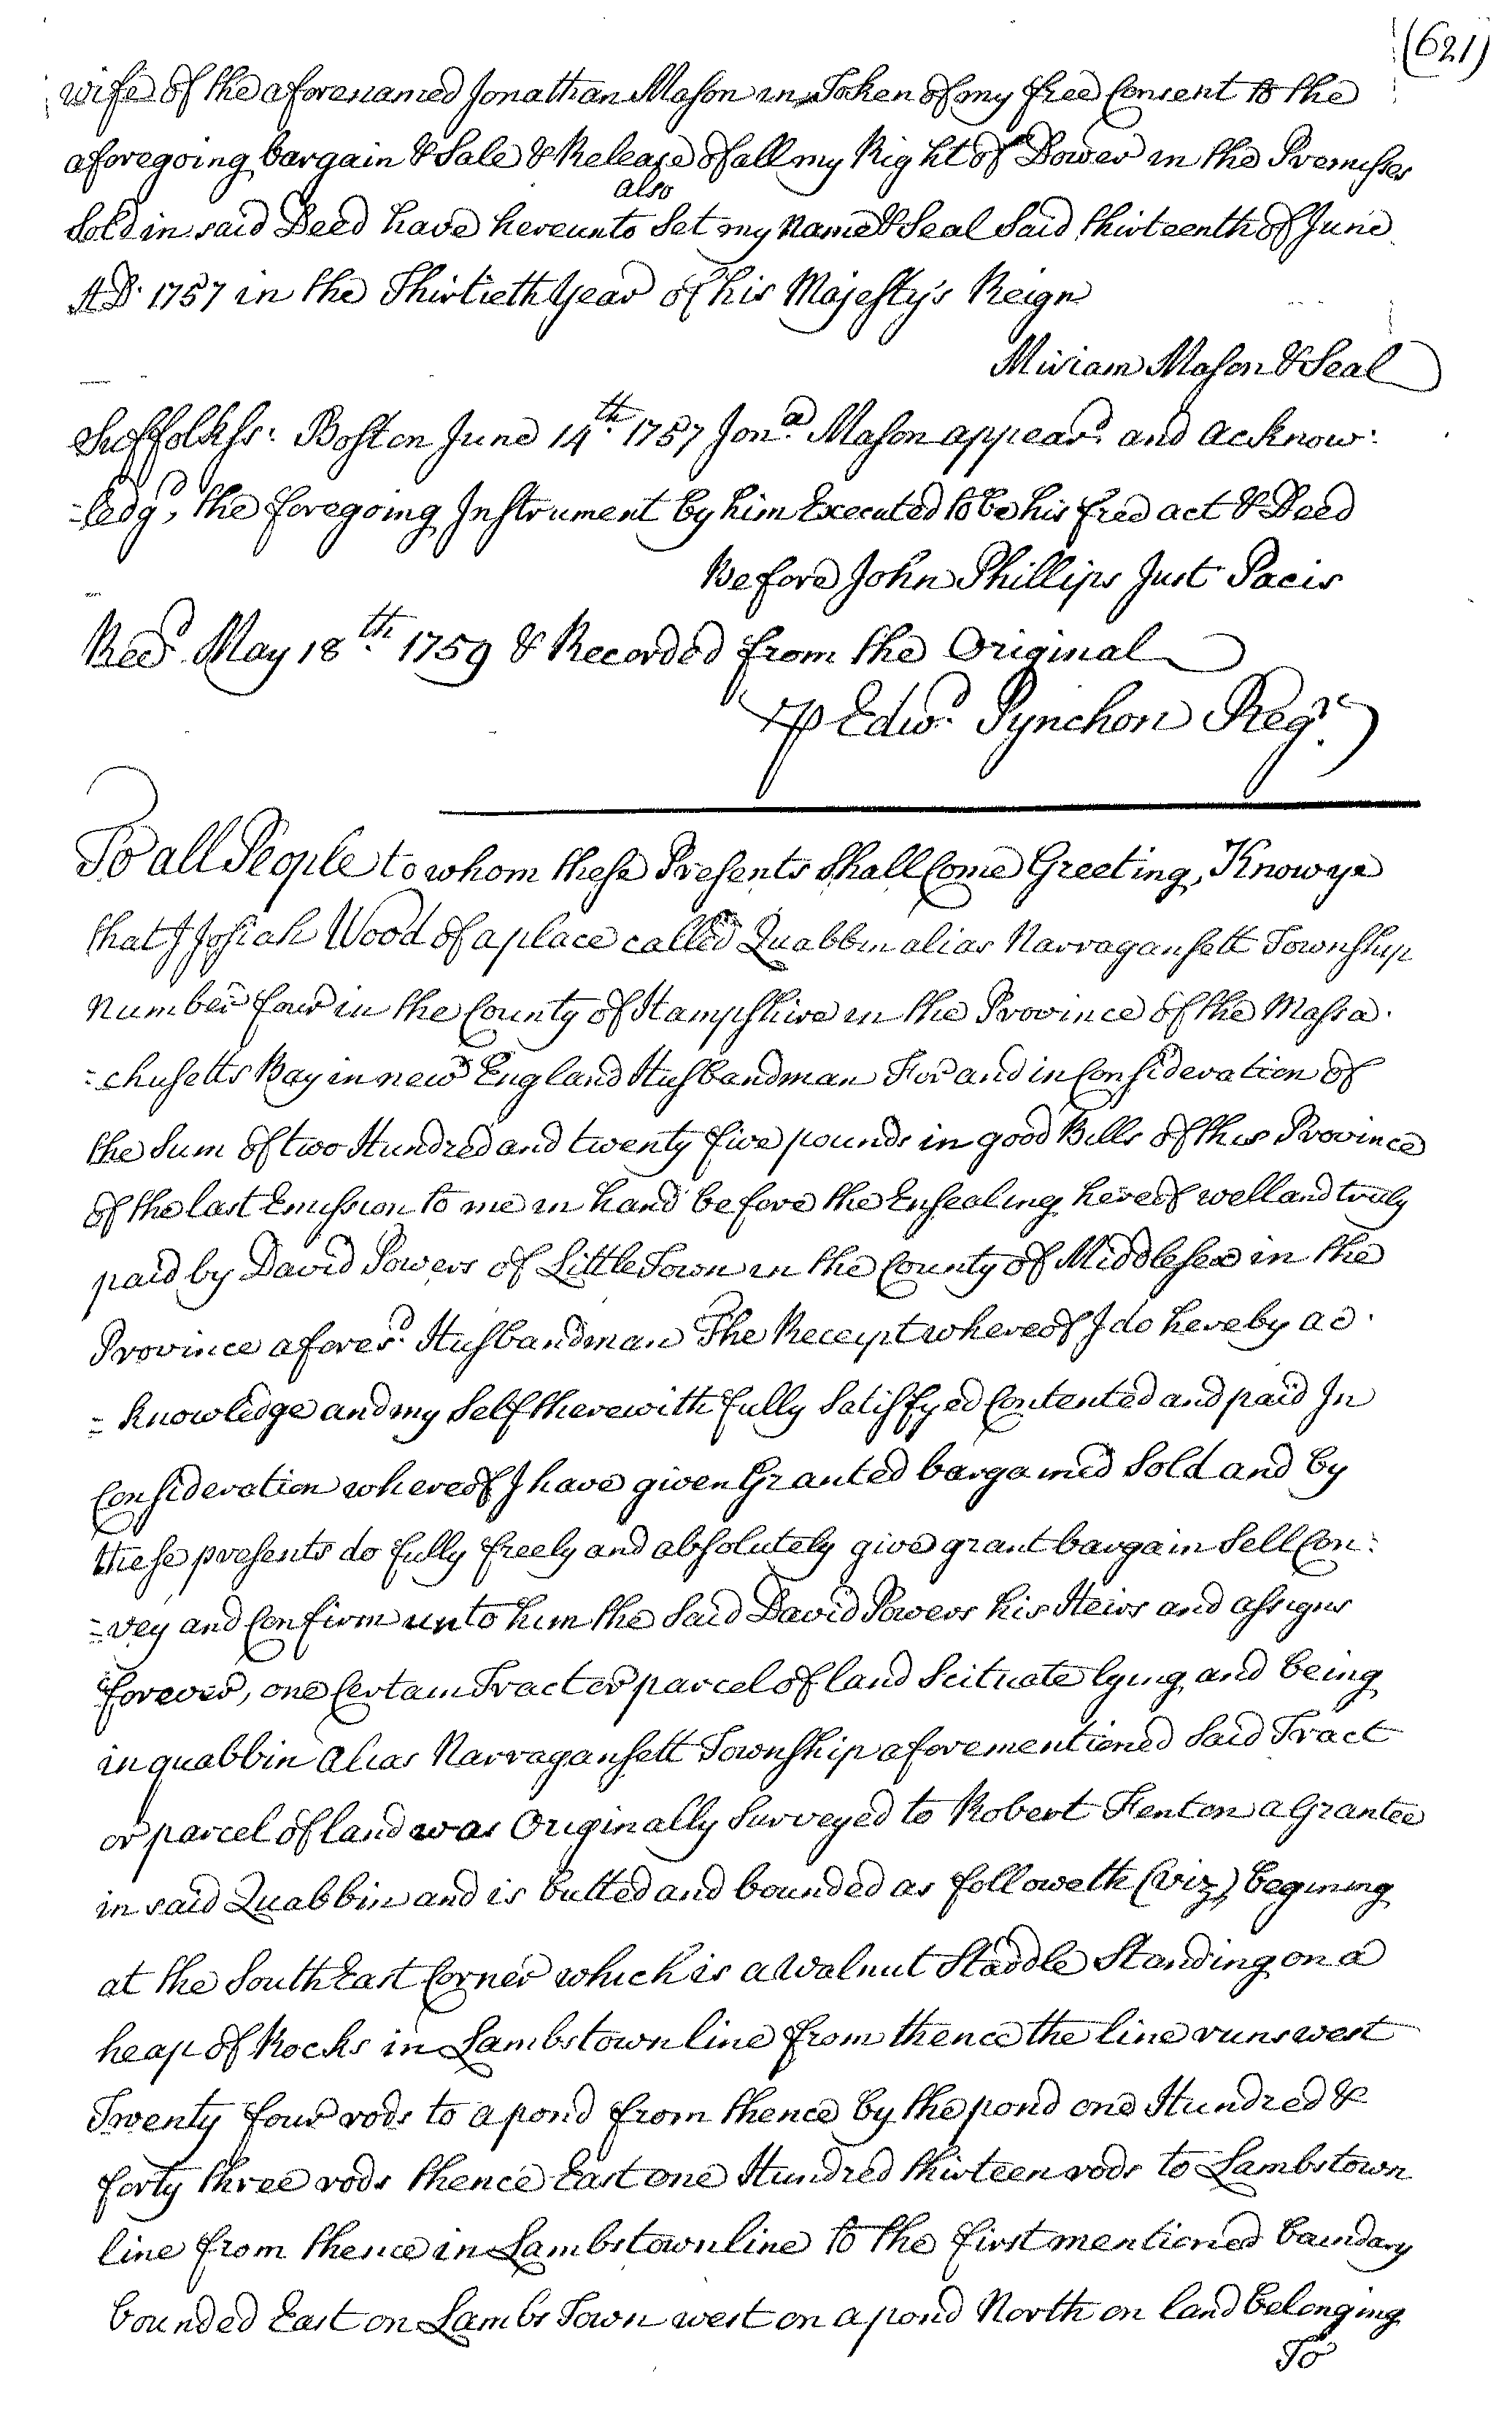 (621)
wife of the aforenamed Jonathan Mason in Token of my free Consent to the
aforegoing bargain & Sale & Release of all my Right of Dower in the Premisses
also
Sold in said Deed have hereunto Set my name & Seal Said thirteenth of June
A.D. 1757 in the Thirtieth Year of his Majesty's Reign
Miriam Mason & Seal
Suffolk ss: Boston June 14th. 1757 Jona. Mason appeard. and acknow:
=ledgd, the foregoing Instrument by him Executed to be his free act & Deed
Before John Phillips Just Pacis
Recd. May 18th. 1759 & Recorded from the Original
⅌ Edwd. Pynchon Regr.
To all People to whom these Presents Shall Come Greeting, Know ye
that I Josiah Wood of a place called Quabbin alias Narragansett Township
number four in the County of Hampshire in the Province of the Massa.
=chusetts Bay in new England Husbandman For and in Consideration of
the Sum of two Hundred and twenty five pounds in good Bills of this Province
of the last Emission to me in hand before the Ensealing hereof well and truly
paid by David Powers of Little Town in the County of Middlesex in the
Province aforesd. Husbandman The Receipt whereof I do hereby ac.
=knowledge and my Self therewith fully Satisfyed Contented and paid In
Consideration whereof I have given Granted bargained Sold and by
these presents do fully freely and absolutely give grant bargain Sell Con:
=vey and Confirm unto him the Said David Powers his Heirs and assigns
forever, one Certain Tract or parcel of land Scituate lying and being
in quabbin alias Narragansett Township aforementioned Said Tract
or parcel of land was Originally Surveyed to Robert Fenton a Grantee
in said Quabbin and is butted and bounded as followeth (viz) begining
at the South East Corner which is a walnut Staddle Standing on a
heap of Rocks in Lambstown line from thence the line runs west
Twenty four rods to a pond from thence by the pond one Hundred &
forty three rods thence East one Hundred thirteen rods to Lambstown
line from thence in Lambstown line to the first mentioned boundary
bounded East on Lambs Town west on a pond North on land belonging
To